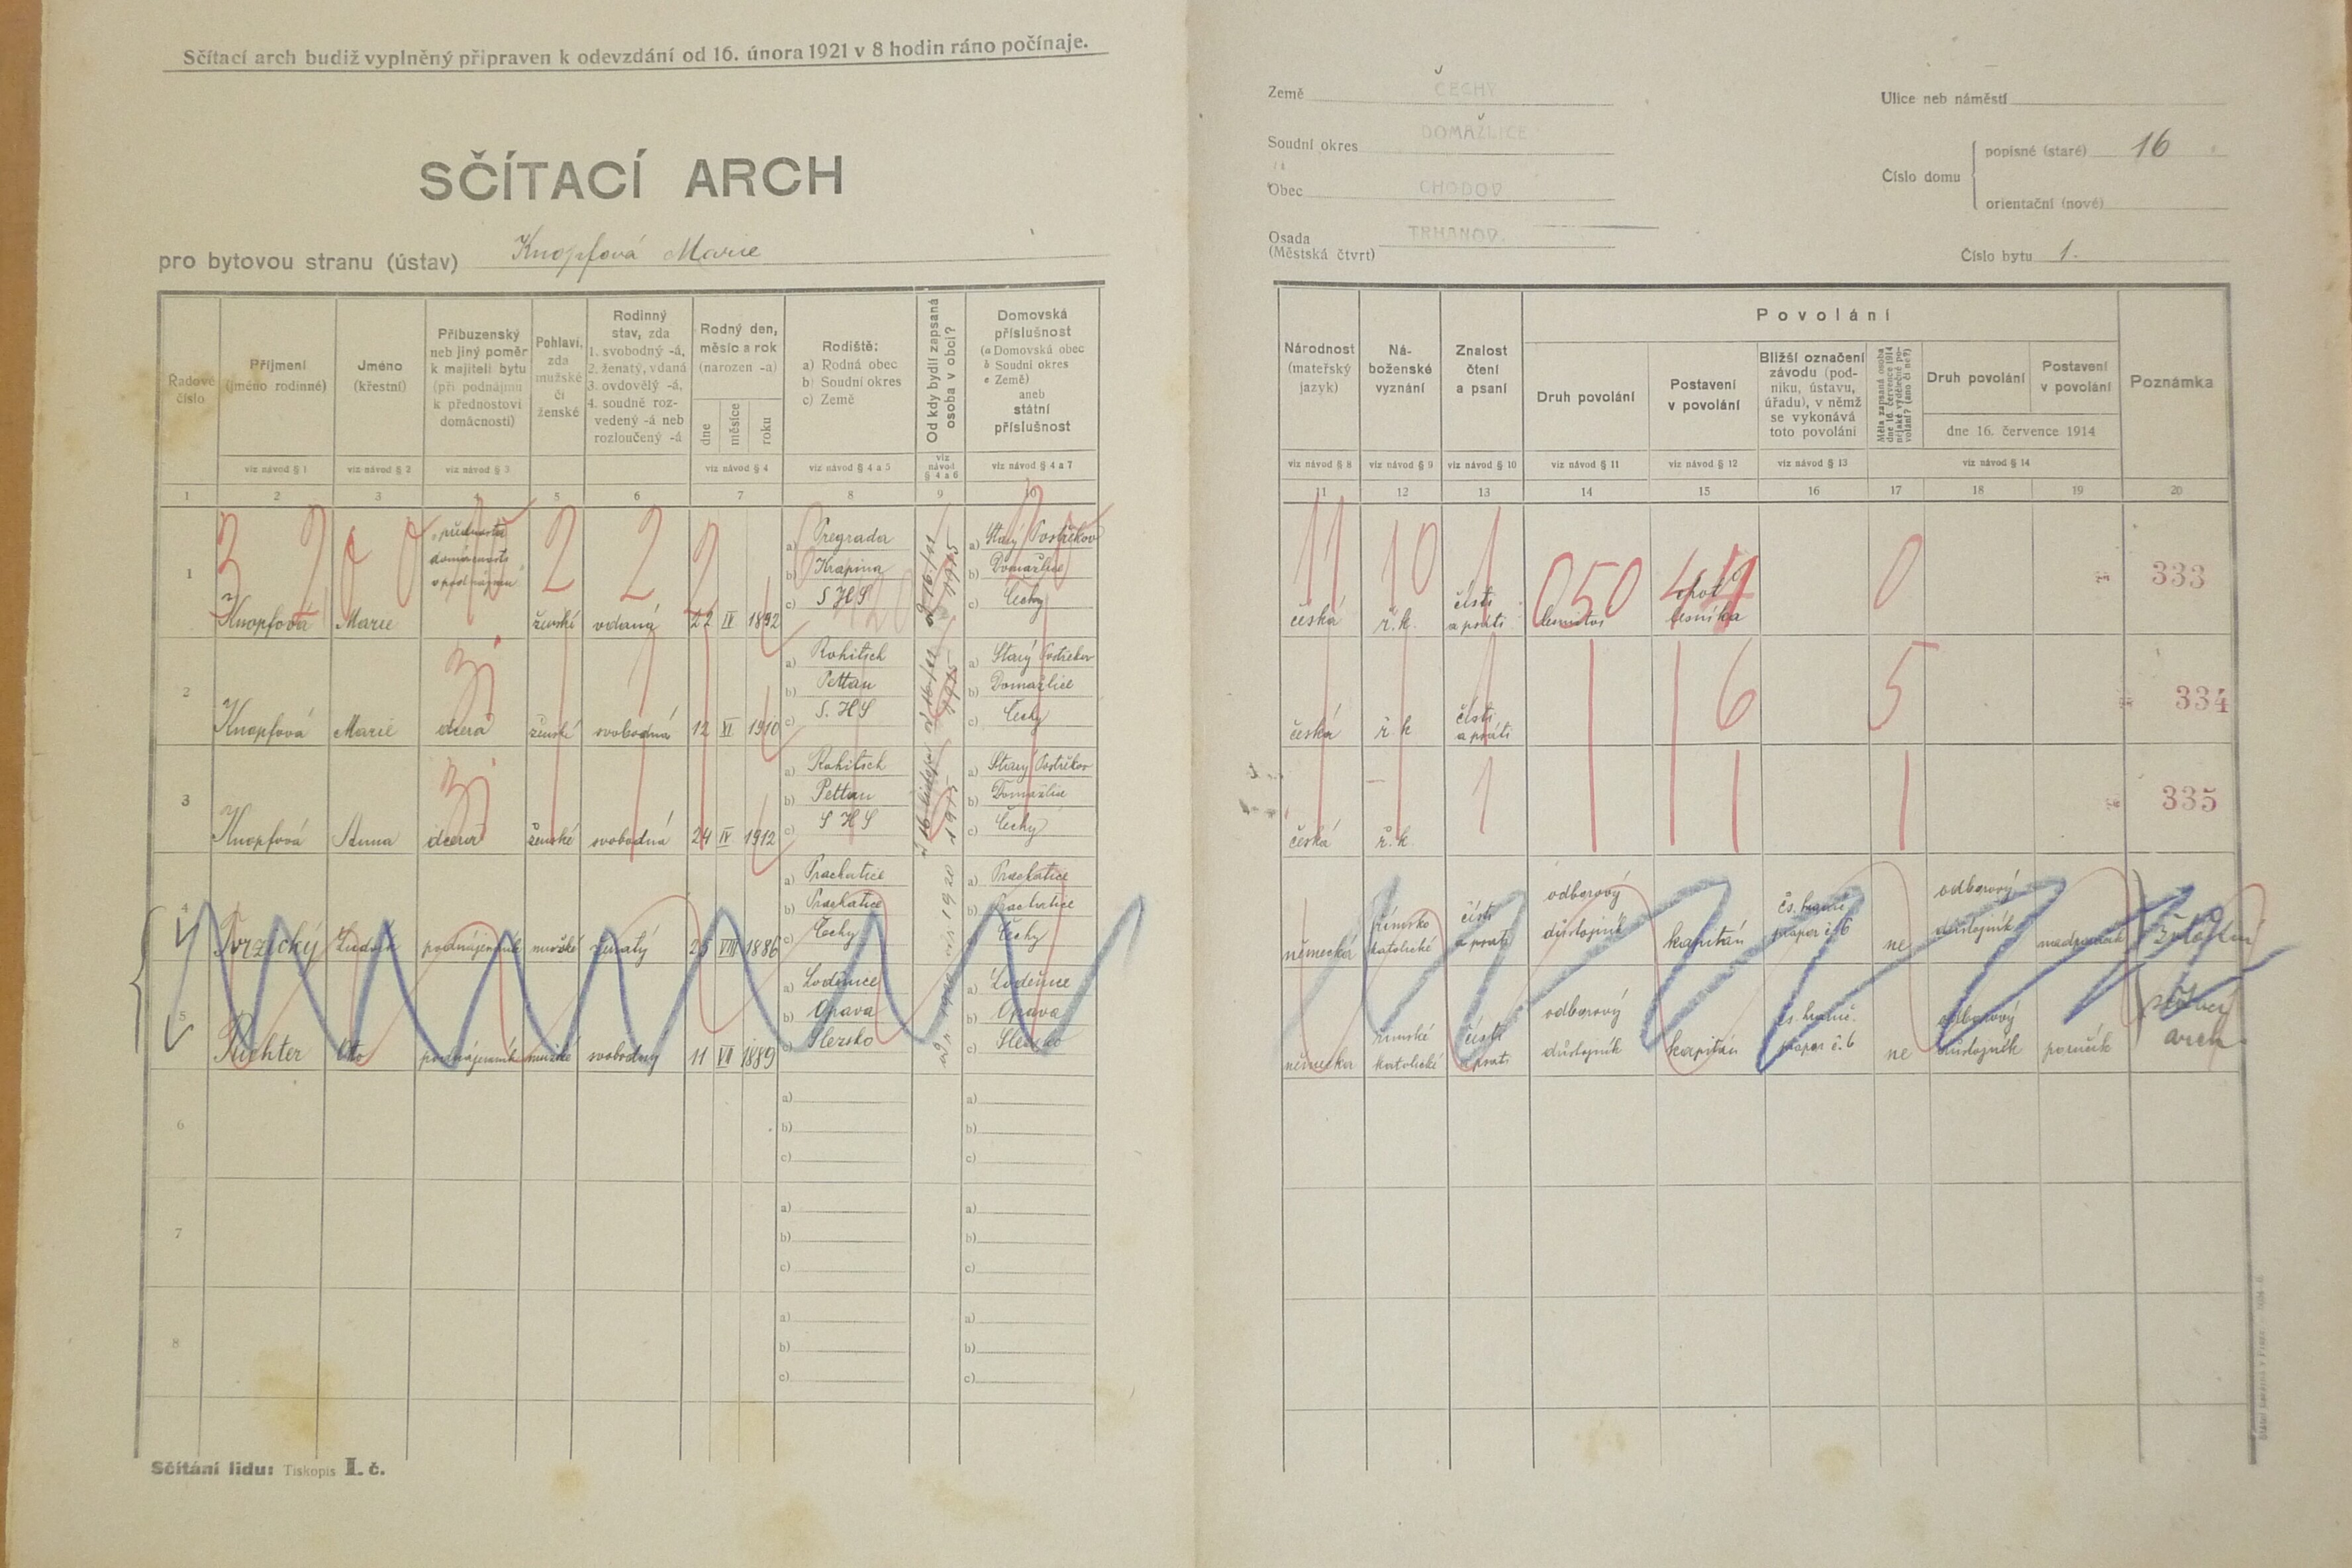 Sčítací arch budiž vyplněný připraven k odevzdání od 16. února 1921 v 8 hodin ráno počínaje.
SČÍTACÍ ARCH
pro bytovou stranu (ústav) Knopfová Marie
Země ČECHY
Soudní okres DOMAŽLICE
Obec CHODOV
Osada TRHANOV.
(Městská čtvrt)
Ulice neb náměstí
Číslo domu
popisné (staré) 16
orientační (nové)
Číslo bytu 1.
Řadové číslo
Příjmení
(jméno rodinné)
viz návod § 1
Jméno
(křestní)
viz návod § 2
Příbuzenský
neb jiný poměr
k majiteli bytu
(při podnájmu
k přednostovi
domácnosti)
viz návod § 3
Pohlaví,
zda
mužské
či
ženské
Rodinný
stav, zda
1. svobodný -á,
2. ženatý, vdaná
3. ovdovělý -á,
4. soudně roz-
vedený -á neb
rozloučený -á
Rodný den,
měsíc a rok
(narozen -a)
dne
měsíce
roku
viz návod § 4
Rodiště:
a) Rodná obec
b) Soudní okres
c) Země
viz návod § 4 a 5
Od kdy bydlí zapsaná
osoba v obci?
viz
návod
§ 4 a 6
Domovská
příslušnost
(a Domovská obec
b Soudní okres
c Země)
aneb
státní
příslušnost
viz návod § 4 a 7
1 2 3 4 5 6 7 8 9 10
Národnost
(mateřský
jazyk)
viz návod § 8
Ná-
boženské
vyznání
viz návod § 9
Znalost
čtení
a psaní
viz návod § 10
Povolání
Druh povolání
viz návod § 11
Postavení
v povolání
viz návod § 12
Bližší označení
závodu (pod-
niku, ústavu,
úřadu), v němž
se vykonává
toto povolání
viz návod § 13
Měla zapsaná osoba
dne 16. července 1914
nějaké výdělečné po-
volání? (ano či ne?)
Druh povolání
Postavení
v povolání
dne 16. července 1914
viz návod § 14
Poznámka
11 12 13 14 15 16 17 18 19 20
1 Knopfová Marie
přednosta
domácnosti
ženské vdaná 22 IV 1892
a) Pregrada
b) Krapina
c) S H S
a) Starý Postřekov
b) Domažlice
c) Čechy
česká ř.k. čísti
a psáti
050
choť
lesníka
0
333
2 Knopfová Marie dcera ženské svobodná 12 XI 1910
a) Rohitsch
b) Pettau
c) S. H S
a) Starý Postřekov
b) Domažlice
c) Čechy
česká ř.k čísti
a psáti
6 5
334
3 Knopfová Anna dcera ženské svobodná 24 IV 1912
a) Rohitsch
b) Pettau
c) S H S
a) Starý Postřekov
b) Domažlice
c) Čechy
česká ř.k.
335
4 Tvrzický Ludvík podnájemník mužské ženatý 25 VIII 1886
a) Prachatice
b) Prachatice
c) Čechy
a) Prachatice
b) Prachatice
c) Čechy
německá římsko
katolické
čísti
a psáti
odborový
důstojník
kapitán
čs. hranič.
prapor č. 6
ne
odborový
důstojník
Zvláštní
5 Richter Otto podnájemník mužské svobodný 11 VII 1889
a) Loděnice
b) Opava
c) Slezsko
a) Loděnice
b) Opava
c) Slezsko
německá římské
katolické
čísti
a psáti
odborový
důstojník
kapitán
čs. hranič.
prapor č. 6
ne
odborový
důstojník
poručík
sčítací
arch
6
a)
b)
c)
a)
b)
c)
7
a)
b)
c)
a)
b)
c)
8
a)
b)
c)
a)
b)
c)
Sčítání lidu: Tiskopis I. č.